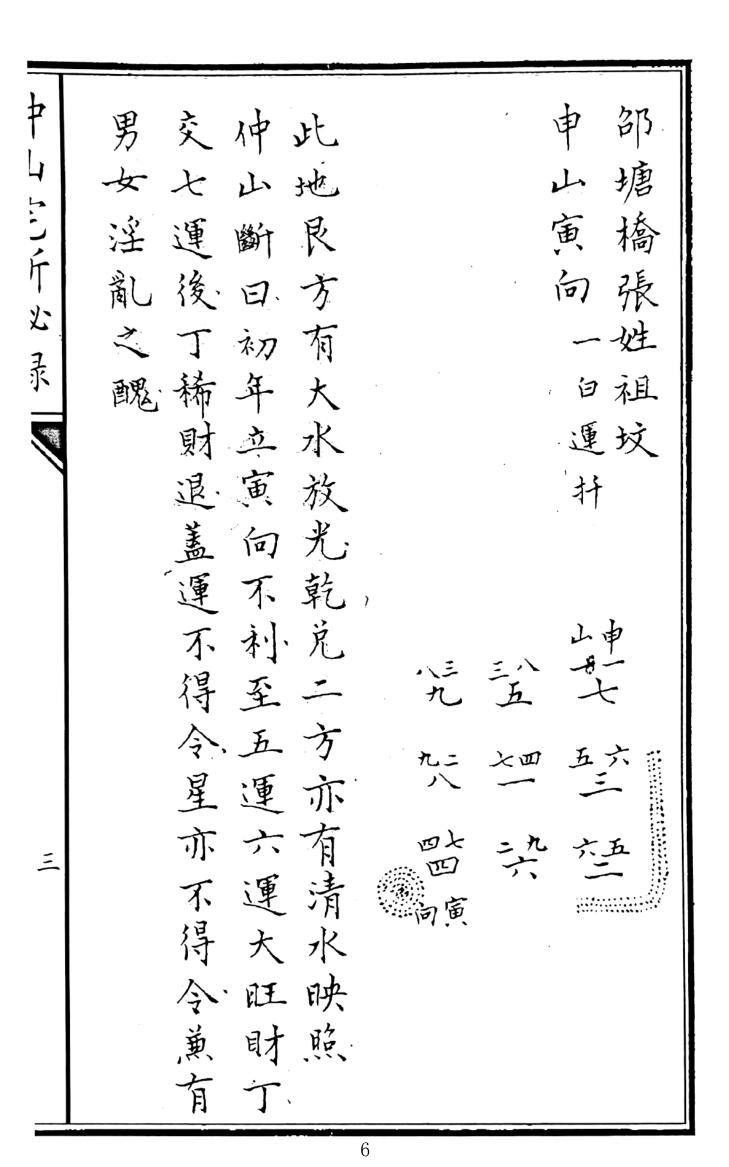 邵塘橋張姓祖坟
申山寅向 一白運扦
申山
一七
八三 三八
五 九
六五 四七 二九
三 一 八
五六 九二 七四
二 六 四
寅向
此地艮方有大水放光乾兑二方亦有清水映照
仲山斷曰初年立寅向不利至五運六運大旺財丁
交七運後丁稀財退蓋運不得令星亦不得令兼有
男女淫亂之醜
仲山宅断必录
三
6